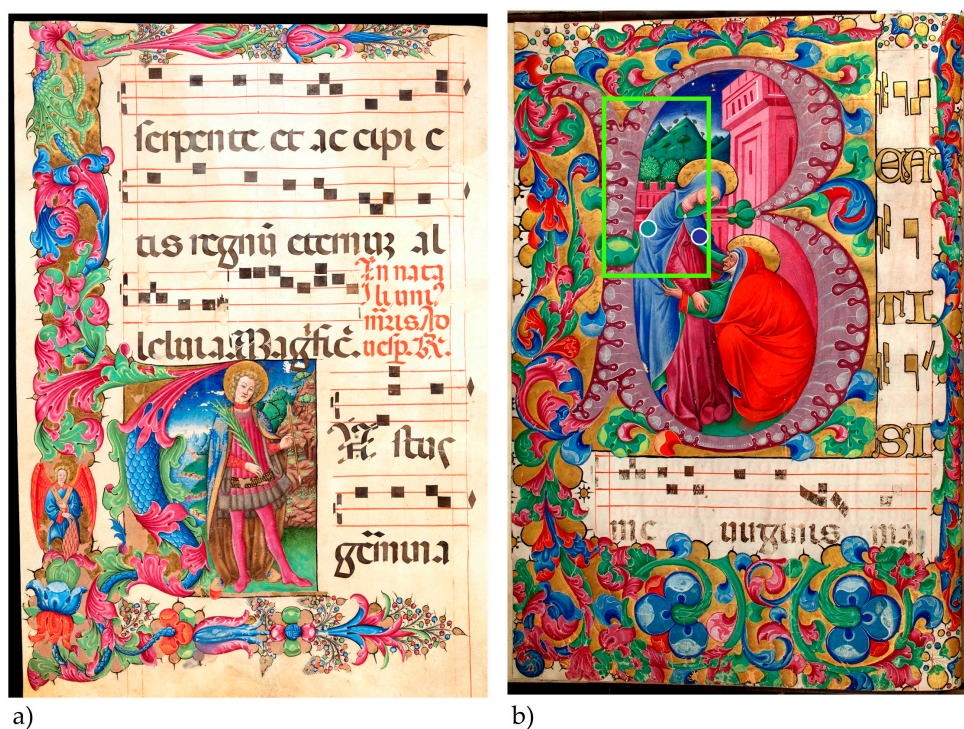 serpente. et ac cipi e
tis regnũ eternuz al
In nata
li uni
mr̃is Ad
leluia. Magfic̃.
uesp. R̃.
stus
gemina
a)
B
EA
TI
SI
me uirginis ma
b)